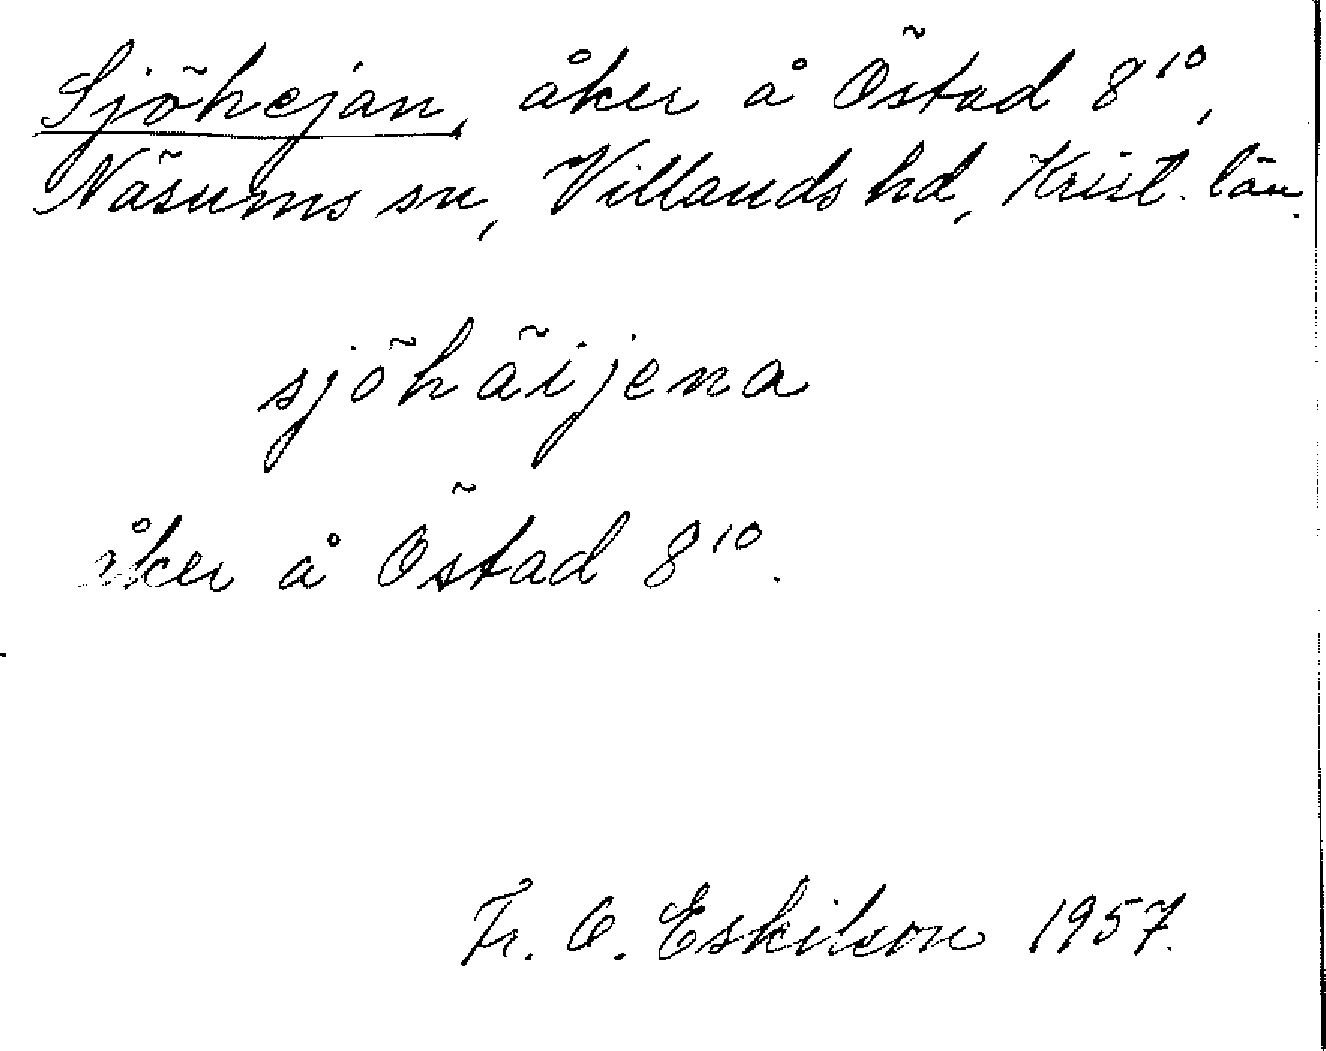 Sjöhejan, åker å Östad 8¹⁰,
Näsums sn, Villands hd, Krist. län.
sjöhäijena
åker å Östad 8¹⁰.
Fr. O. Eskilson 1957.